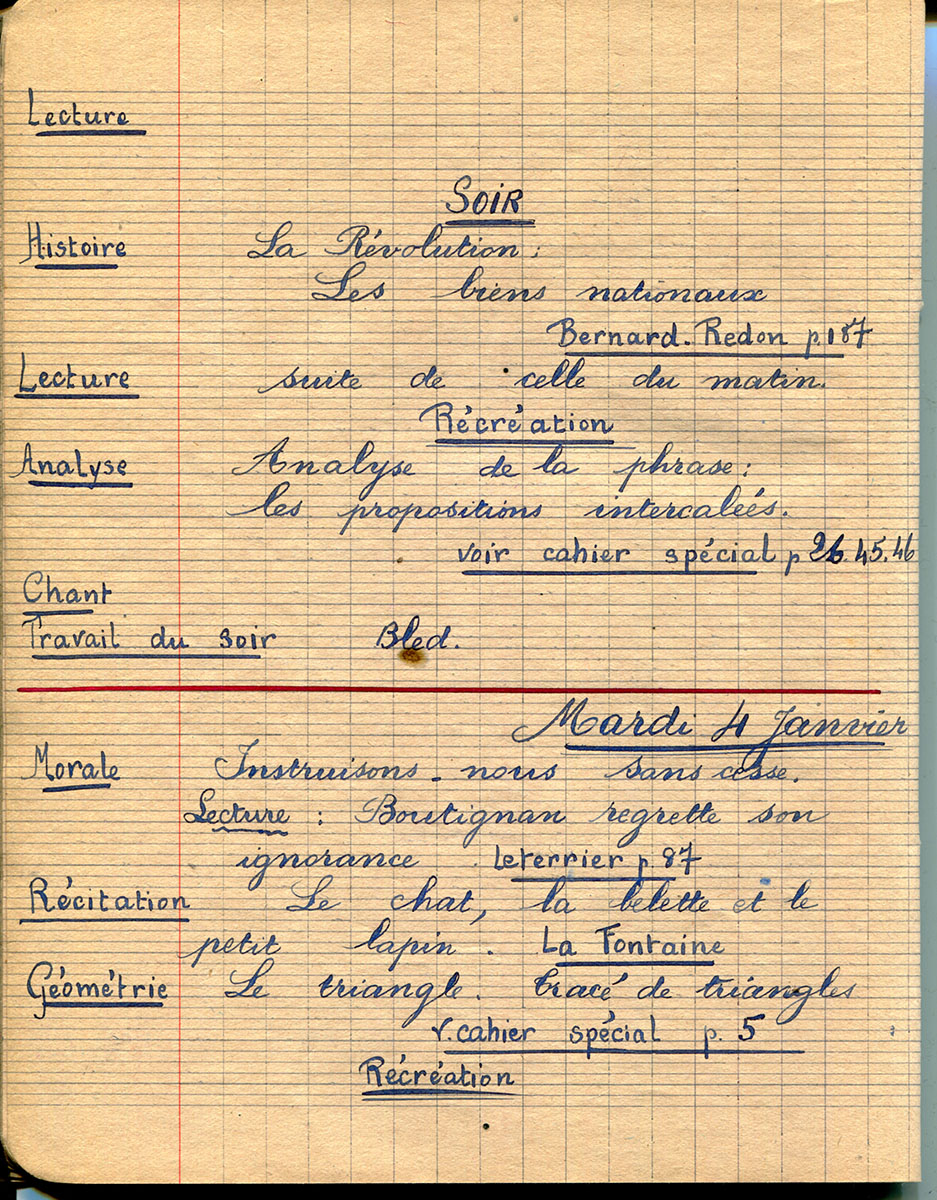 Lecture
SOIR
Histoire La Révolution :
Les biens nationaux
Bernard. Redon p. 187
Lecture suite de celle du matin.
Récréation
Analyse Analyse de la phrase :
les propositions intercalées.
voir cahier spécial p 26. 45. 46
Chant
Travail du soir Bled.
Mardi 4 Janvier
Morale Instruisons-nous sans cesse.
Lecture : Boutignan regrette son
ignorance Leterrier p. 87
Récitation Le chat, la belette et le
petit lapin. La Fontaine
Géométrie Le triangle. Tracé de triangles
V. cahier spécial p. 5
Récréation